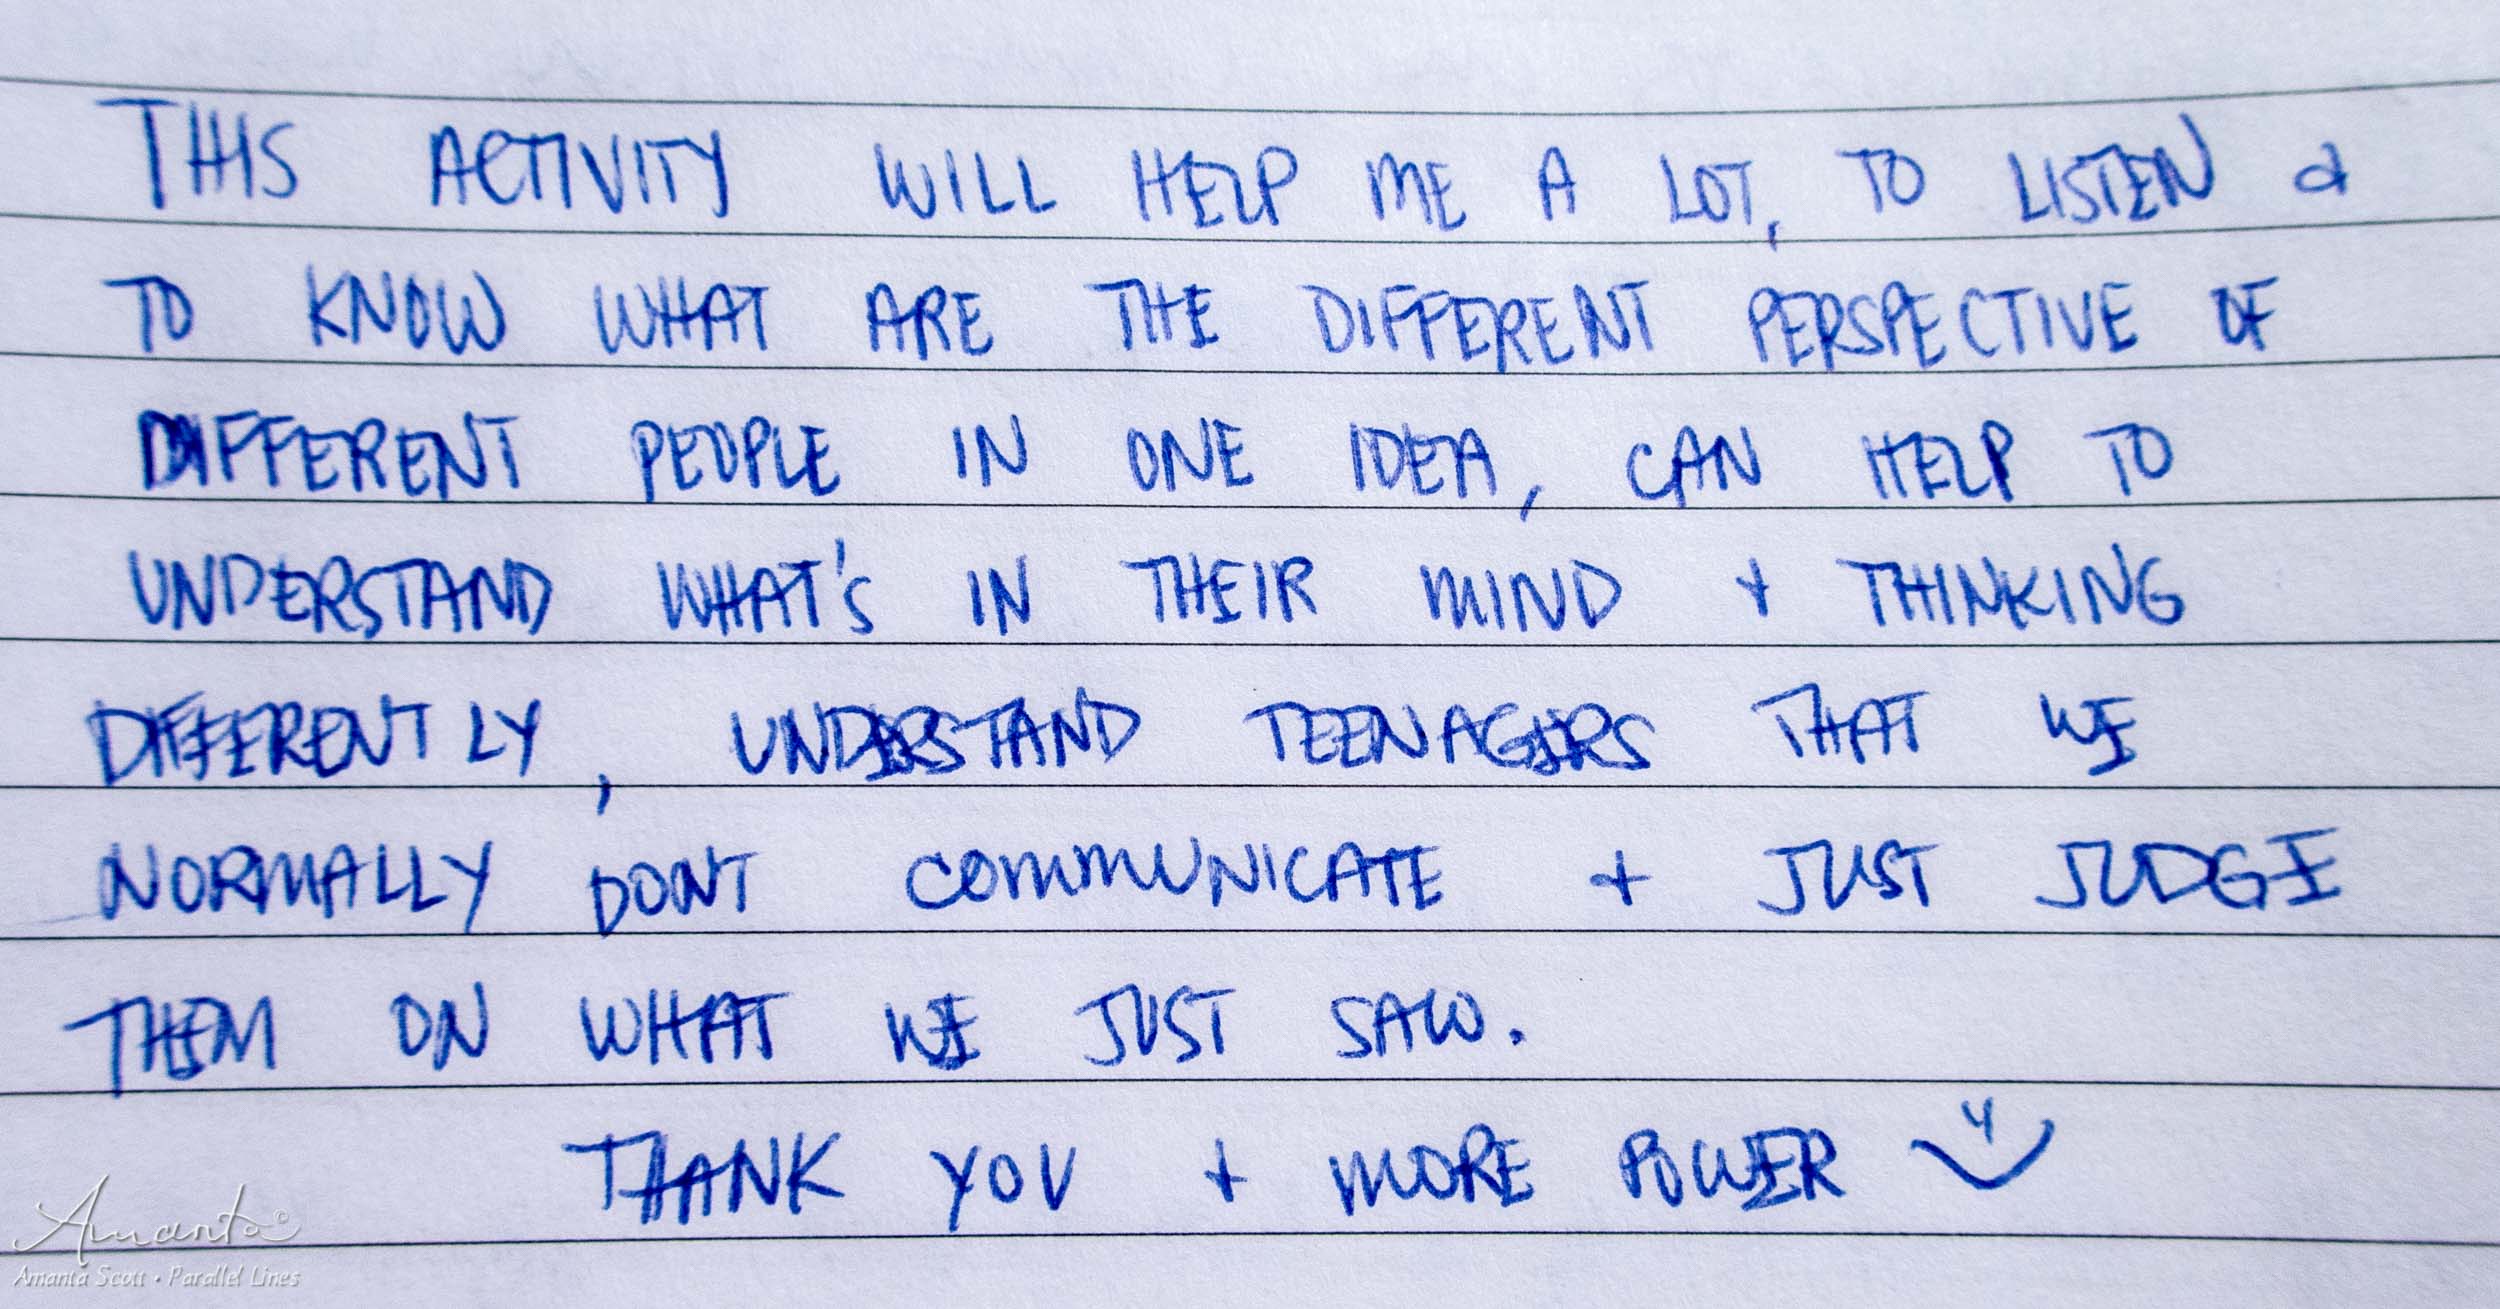 THIS ACTIVITY WILL HELP ME A LOT, TO LISTEN &
TO KNOW WHAT ARE THE DIFFERENT PERSPECTIVE OF
DIFFERENT PEOPLE IN ONE IDEA, CAN HELP TO
UNDERSTAND WHAT'S IN THEIR MIND + THINKING
DIFFERENTLY, UNDERSTAND TEENAGERS THAT WE
NORMALLY DONT COMMUNICATE + JUST JUDGE
THEM ON WHAT WE JUST SAW.
THANK YOU + MORE POWER
Amanta ©
Amanta Scott • Parallel Lines